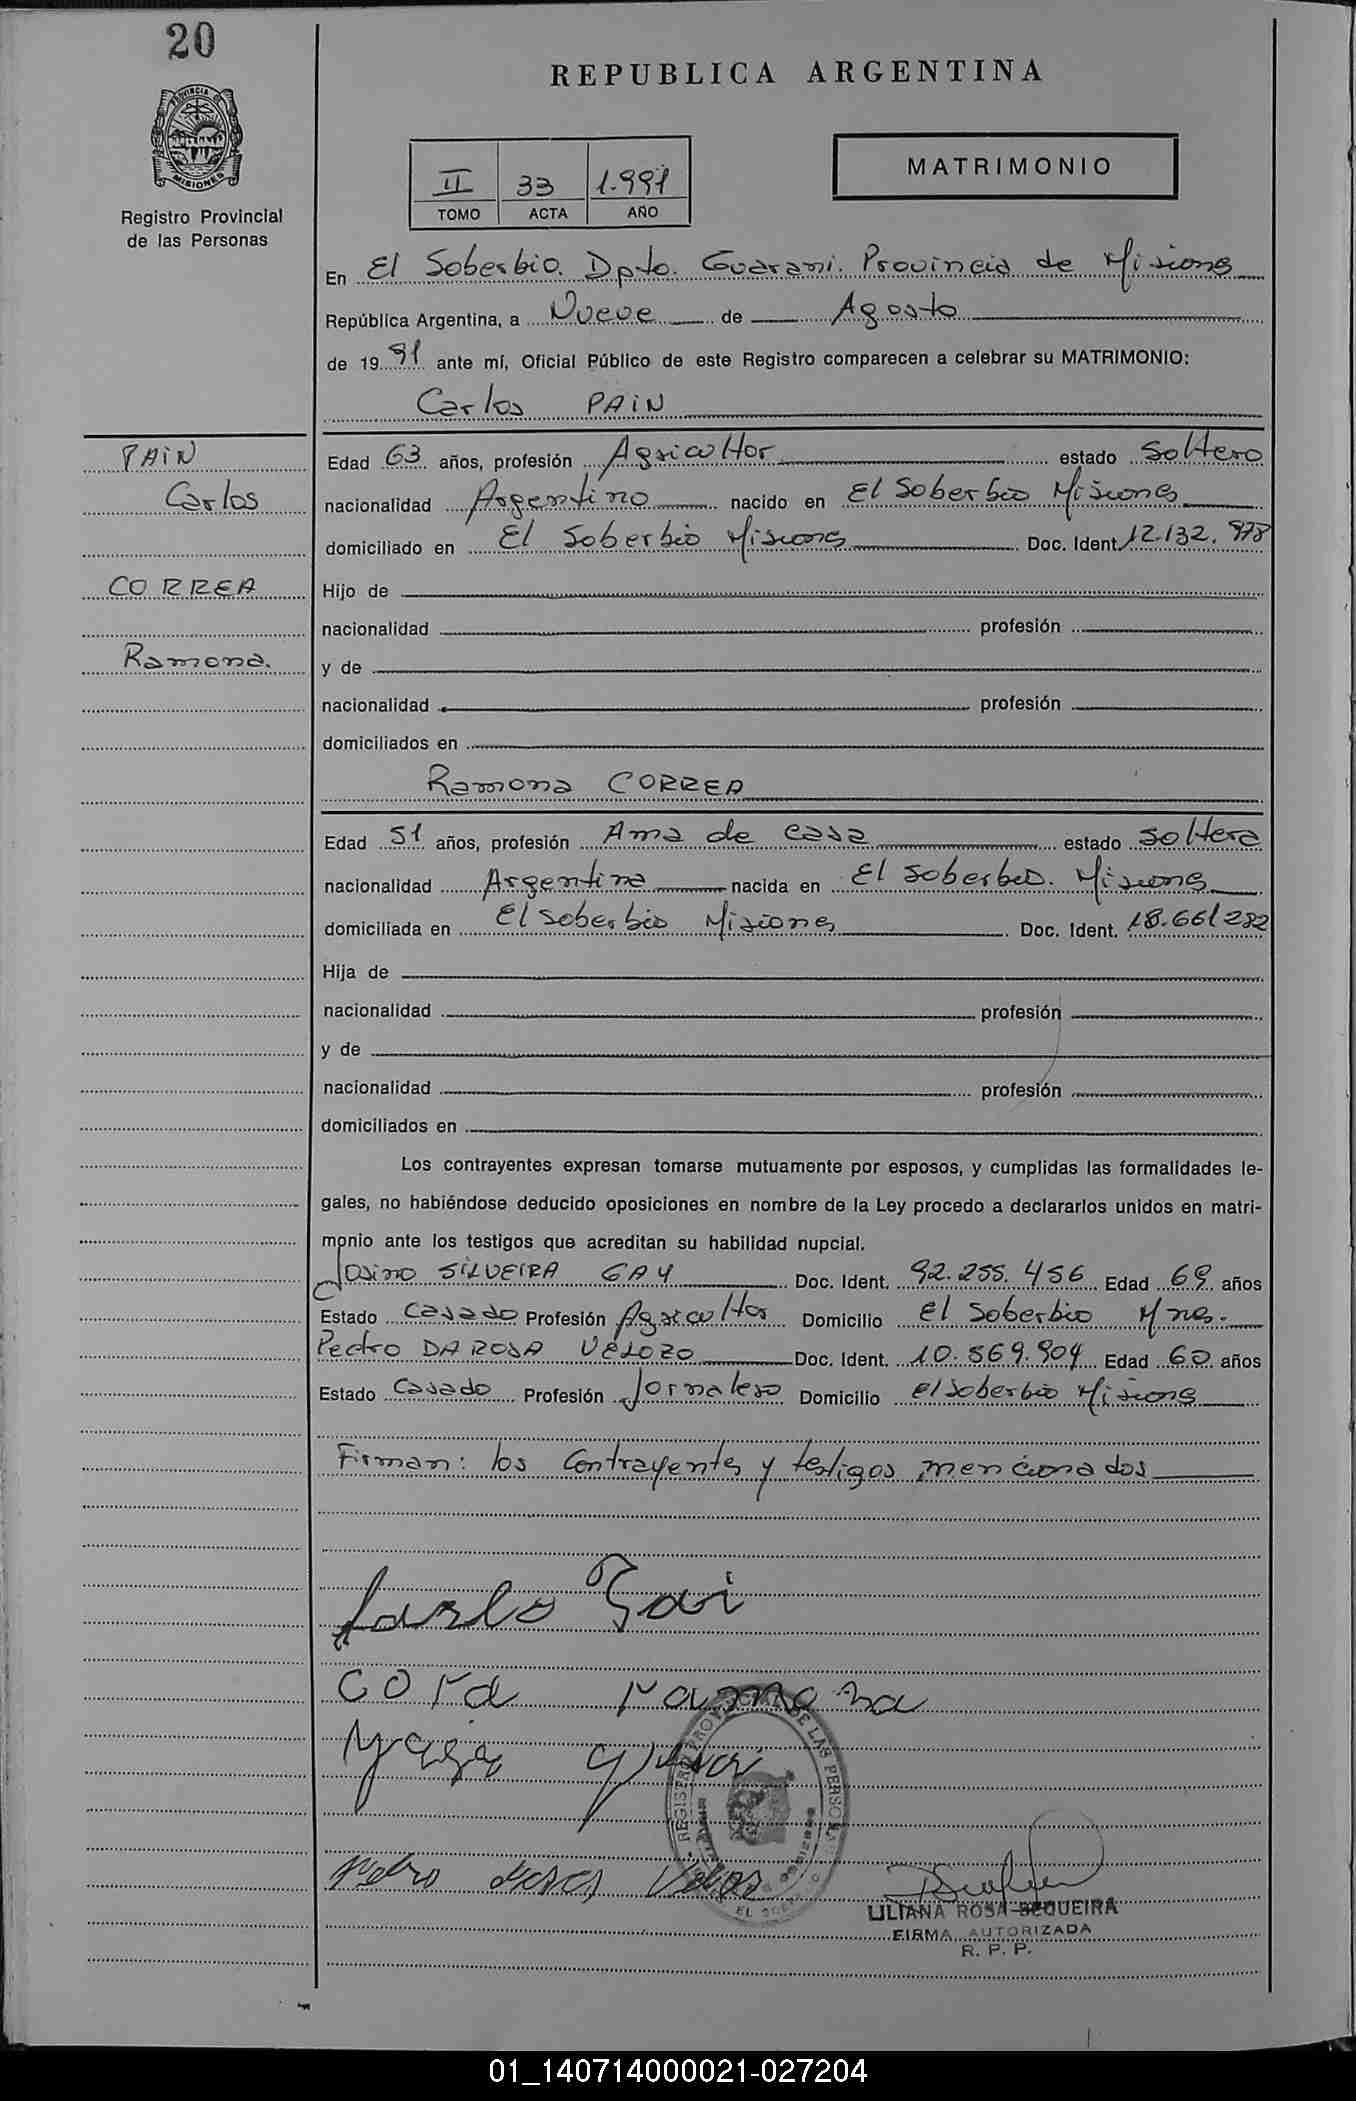 20
REPUBLICA ARGENTINA
PROVINCIA DE
MISIONES
Registro Provincial
de las Personas
MATRIMONIO
II 33 1.991
TOMO ACTA AÑO
En El Soberbio. Dpto. Guarani. Provincia de Misiones
República Argentina, a Nueve de Agosto
de 1991 ante mí, Oficial Público de este Registro comparecen a celebrar su MATRIMONIO:
Carlos PAIN
PAIN
Carlos
CORREA
Ramona.
Edad 63 años, profesión Agricultor estado Soltero
nacionalidad Argentino nacido en El Soberbio Misiones
domiciliado en El Soberbio Misiones Doc. Ident. 12.132.978
Hijo de
nacionalidad profesión
y de
nacionalidad profesión
domiciliados en
Ramona CORREA
Edad 51 años, profesión Ama de casa estado soltera
nacionalidad Argentina nacida en El Soberbio. Misiones
domiciliada en El Soberbio Misiones Doc. Ident. 18.661282
Hija de
nacionalidad profesión
y de
nacionalidad profesión
domiciliados en
Los contrayentes expresan tomarse mutuamente por esposos, y cumplidas las formalidades le-
gales, no habiéndose deducido oposiciones en nombre de la Ley procedo a declararlos unidos en matri-
monio ante los testigos que acreditan su habilidad nupcial.
Josino SILVEIRA GAY Doc. Ident. 92.255.456 Edad 69 años
Estado Casado Profesión Agricultor Domicilio El Soberbio Mnes.
Pedro DA ROSA VELOZO Doc. Ident. 10.569.904 Edad 60 años
Estado Casado Profesión Jornalero Domicilio El Soberbio Misiones
Firman: los Contrayentes y testigos mencionados
Carlo Pai
Cora ramona
REGISTRO PROVINCIAL DE LAS PERSONAS
Pedro
LILIANA ROSA SEQUEIRA
FIRMA AUTORIZADA
R. P. P.
01_140714000021-027204